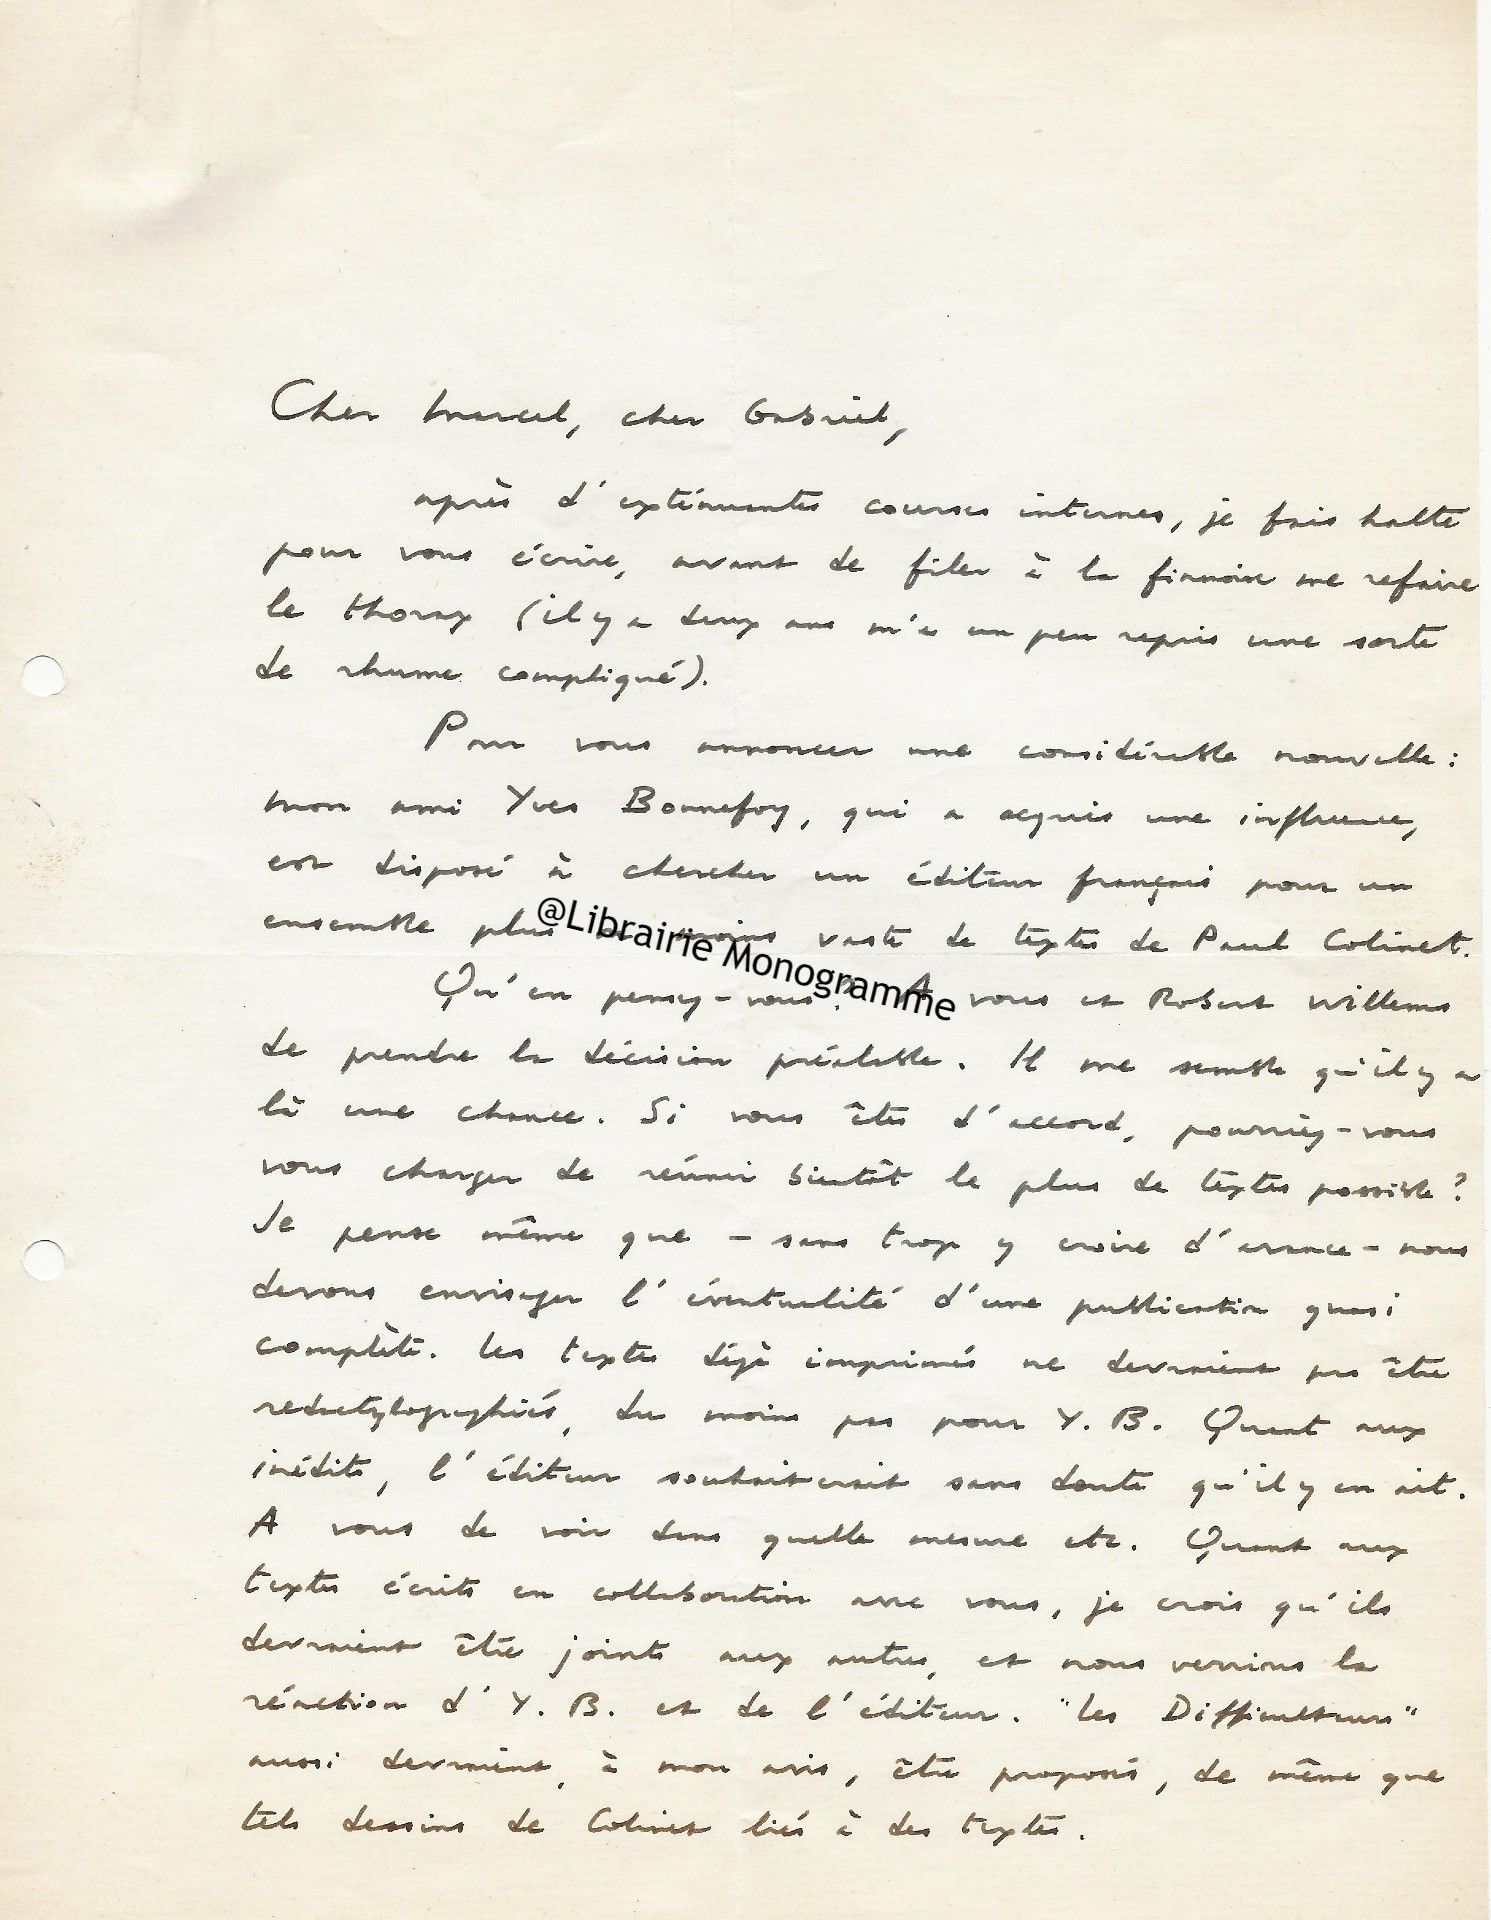 Cher Marcel, cher Gabriel,
après d'exténuantes courses internes, je fais halte
pour vous écrire, avant de filer à la firmoire me refaire
le thorax (il y a deux ans m'a un peu repris une sorte
de rhume compliqué).
Pour vous annoncer une considérable nouvelle :
mon ami Yves Bonnefoy, qui a acquis une influence,
est disposé à chercher un éditeur français pour un
ensemble plus ou moins vaste de textes de Paul Colinet.
@Librairie Monogramme
Qu'en pensez-vous ? A vous et Robert Willems
de prendre la décision préalable. Il me semble qu'il y a
là une chance. Si vous êtes d'accord, pourriez-vous
vous charger de réunir bientôt le plus de textes possible ?
Je pense même que – sans trop y croire d'avance – nous
devons envisager l'éventualité d'une publication quasi
complète. Les textes déjà imprimés ne devraient pas être
redactylographiés, du moins pas pour Y. B. Quant aux
inédits, l'éditeur souhaiterait sans doute qu'il y en ait.
A vous de voir dans quelle mesure etc. Quant aux
textes écrits en collaboration avec vous, je crois qu'ils
devraient être joints aux autres, et nous verrions la
réaction d'Y. B. et de l'éditeur. "Les Difficulteurs"
aussi devraient, à mon avis, être proposés, de même que
tels dessins de Colinet liés à des textes.